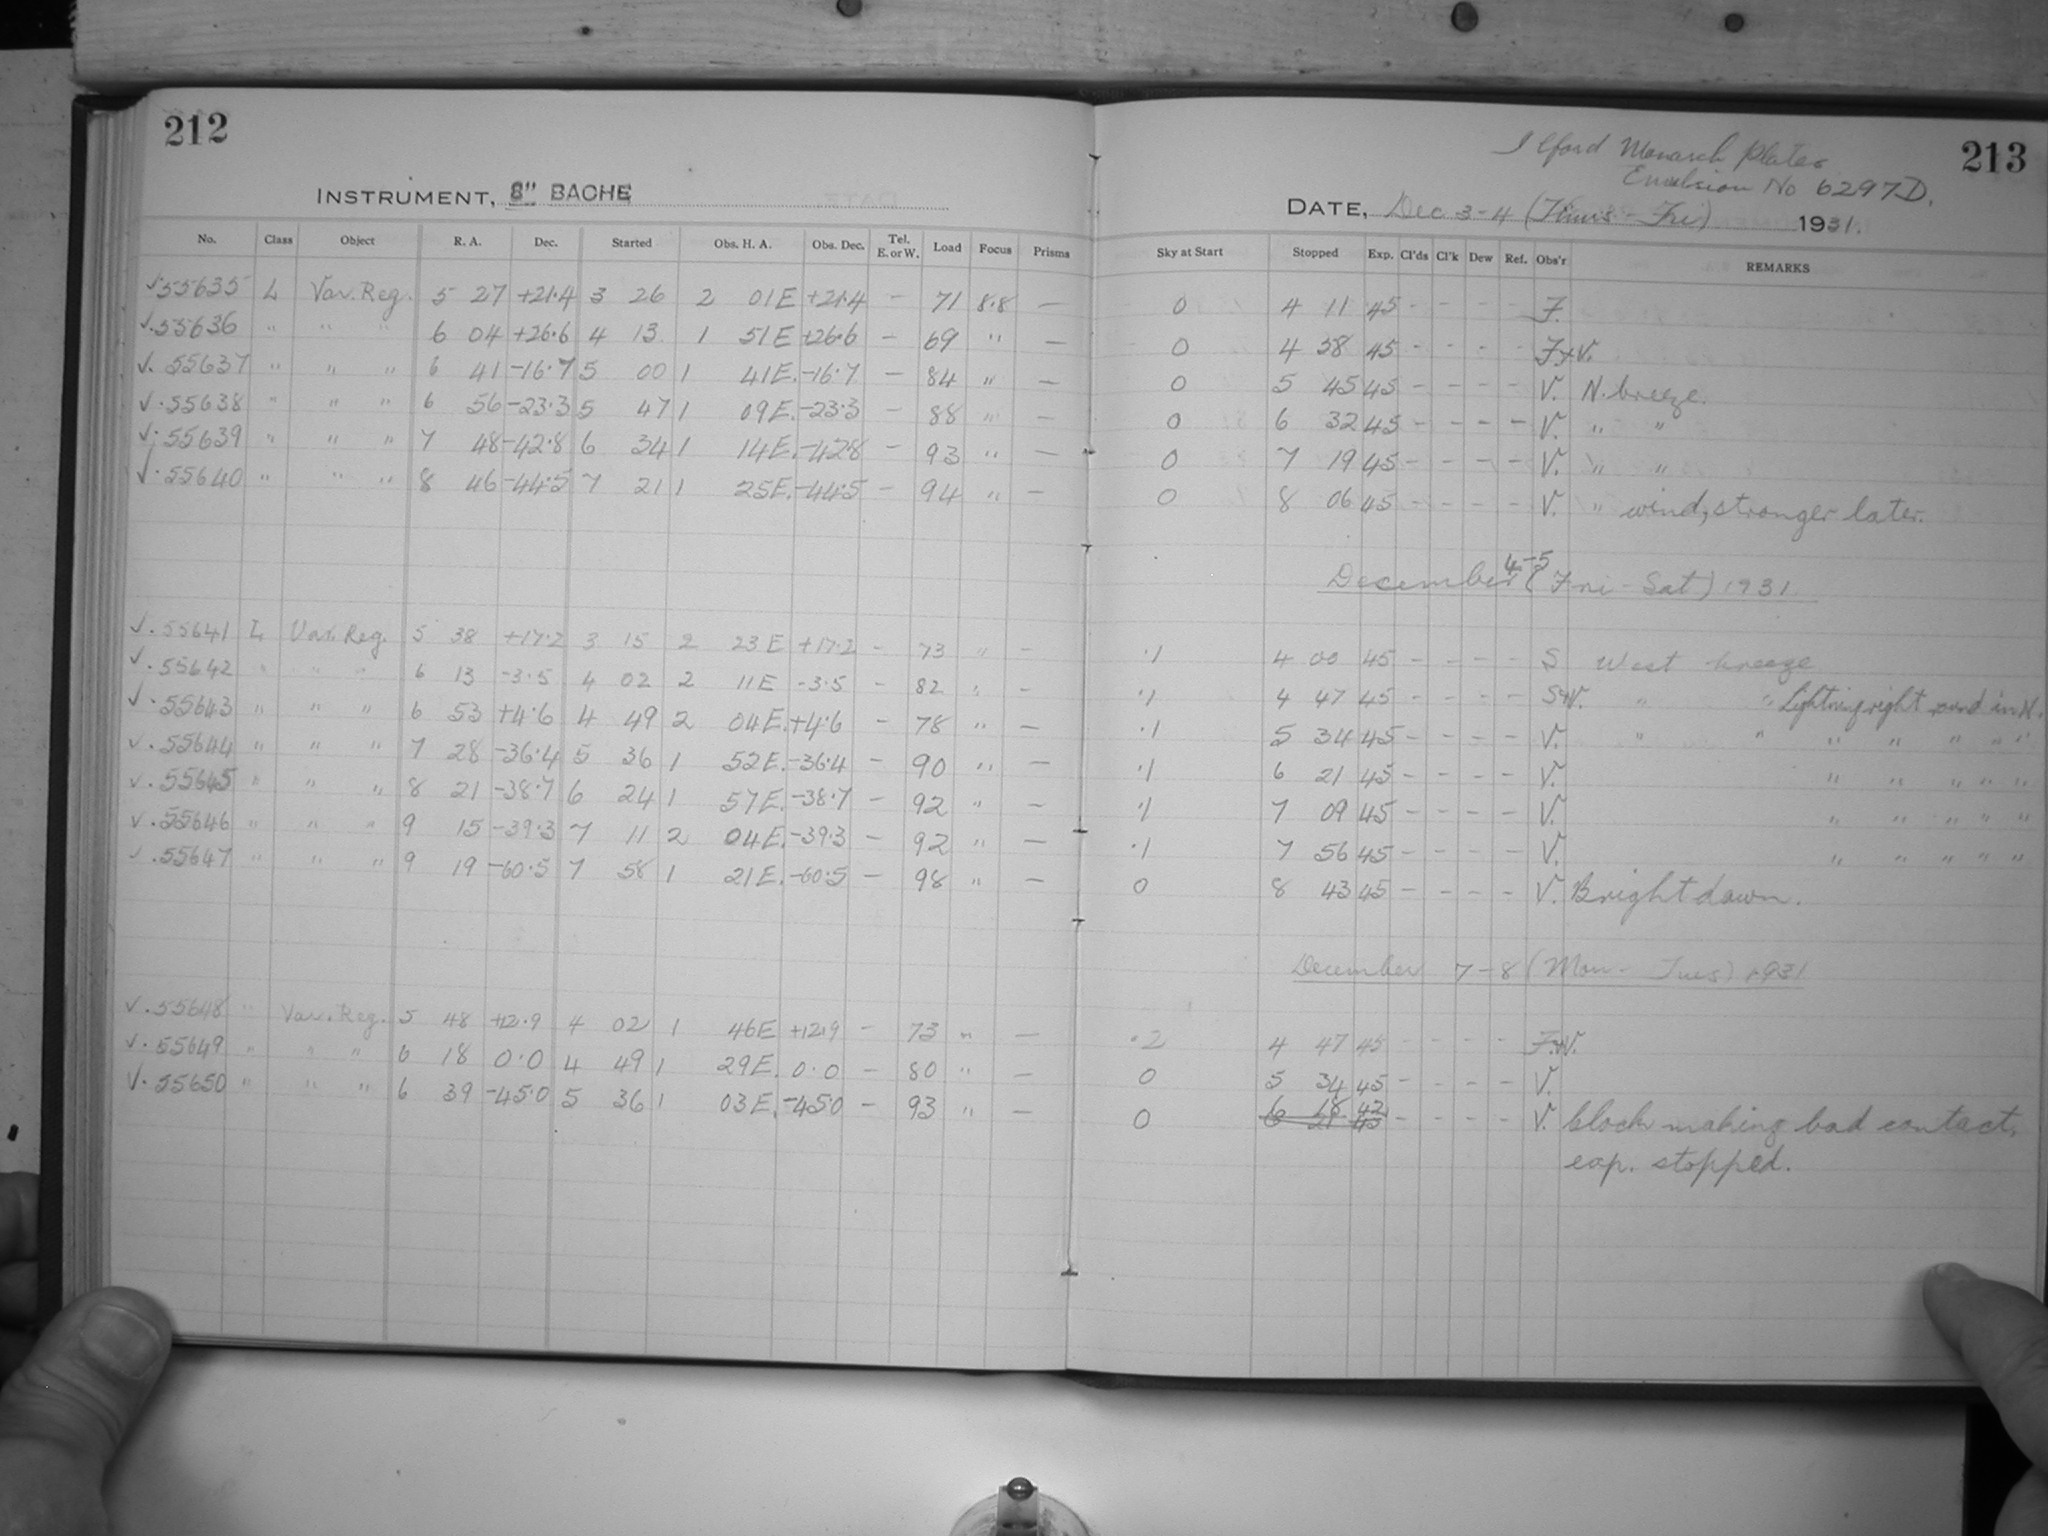 212
INSTRUMENT, 8" BACHE
No. Class Object R. A. Dec. Started Obs. H. A. Obs. Dec. Tel. E. or W. Load Focus Prisms
√55635 L Var. Reg. 5 27 +21.4 3 26 2 01E +21.4 - 71 8.8 -
√.55636 " " " 6 04 +26.6 4 13 1 51E +26.6 - 69 " -
√.55637 " " " 6 41 -16.7 5 00 1 41E. -16.7 - 84 " -
√.55638 " " " 6 56 -23.3 5 47 1 09E. -23.3 - 88 " -
√.55639 " " " 7 48 -42.8 6 34 1 14E. -42.8 - 93 " -
√.55640 " " " 8 46 -44.5 7 21 1 25E. -44.5 - 94 " -
√.55641 L Var. Reg. 5 38 +17.2 3 15 2 23E +17.2 - 73 " -
√.55642 " " " 6 13 -3.5 4 02 2 11E -3.5 - 82 " -
√.55643 " " " 6 53 +4.6 4 49 2 04E. +4.6 - 78 " -
√.55644 " " " 7 28 -36.4 5 36 1 52E. -36.4 - 90 " -
√.55645 " " " 8 21 -38.7 6 24 1 57E. -38.7 - 92 " -
√.55646 " " " 9 15 -39.3 7 11 2 04E. -39.3 - 92 " -
√.55647 " " " 9 19 -60.5 7 58 1 21E. -60.5 - 98 " -
√.55648 " Var. Reg. 5 48 +12.9 4 02 1 46E +12.9 - 73 " -
√.55649 " " " 6 18 0.0 4 49 1 29E. 0.0 - 80 " -
√.55650 " " " 6 39 -45.0 5 36 1 03E. -45.0 - 93 " -
213
Ilford Monarch Plates
Emulsion No 6297D.
DATE, Dec 3-4 (Thurs - Fri) 1931.
Sky at Start Stopped Exp. Cl'ds Cl'k Dew Ref. Obs'r REMARKS
0 4 11 45 - - - - F.
0 4 58 45 - - - - F+V.
0 5 45 45 - - - - V. N. breeze.
0 6 32 45 - - - - V. " "
0 7 19 45 - - - - V. " "
0 8 06 45 - - - - V. " wind, stronger later.
December 4-5 (Fri - Sat) 1931
.1 4 00 45 - - - - S West breeze
.1 4 47 45 - - - - S+V. " " Lightning right round in N.
.1 5 34 45 - - - - V. " " " " " " "
.1 6 21 45 - - - - V. " " " " "
.1 7 09 45 - - - - V. " " " " "
.1 7 56 45 - - - - V. " " " " "
0 8 43 45 - - - - V. Bright dawn.
December 7-8 (Mon - Tues) 1931
.2 4 47 45 - - - - F+V.
0 5 34 45 - - - - V.
0 6 18 42 - - - - V. Clock making bad contact,
21 45
exp. stopped.